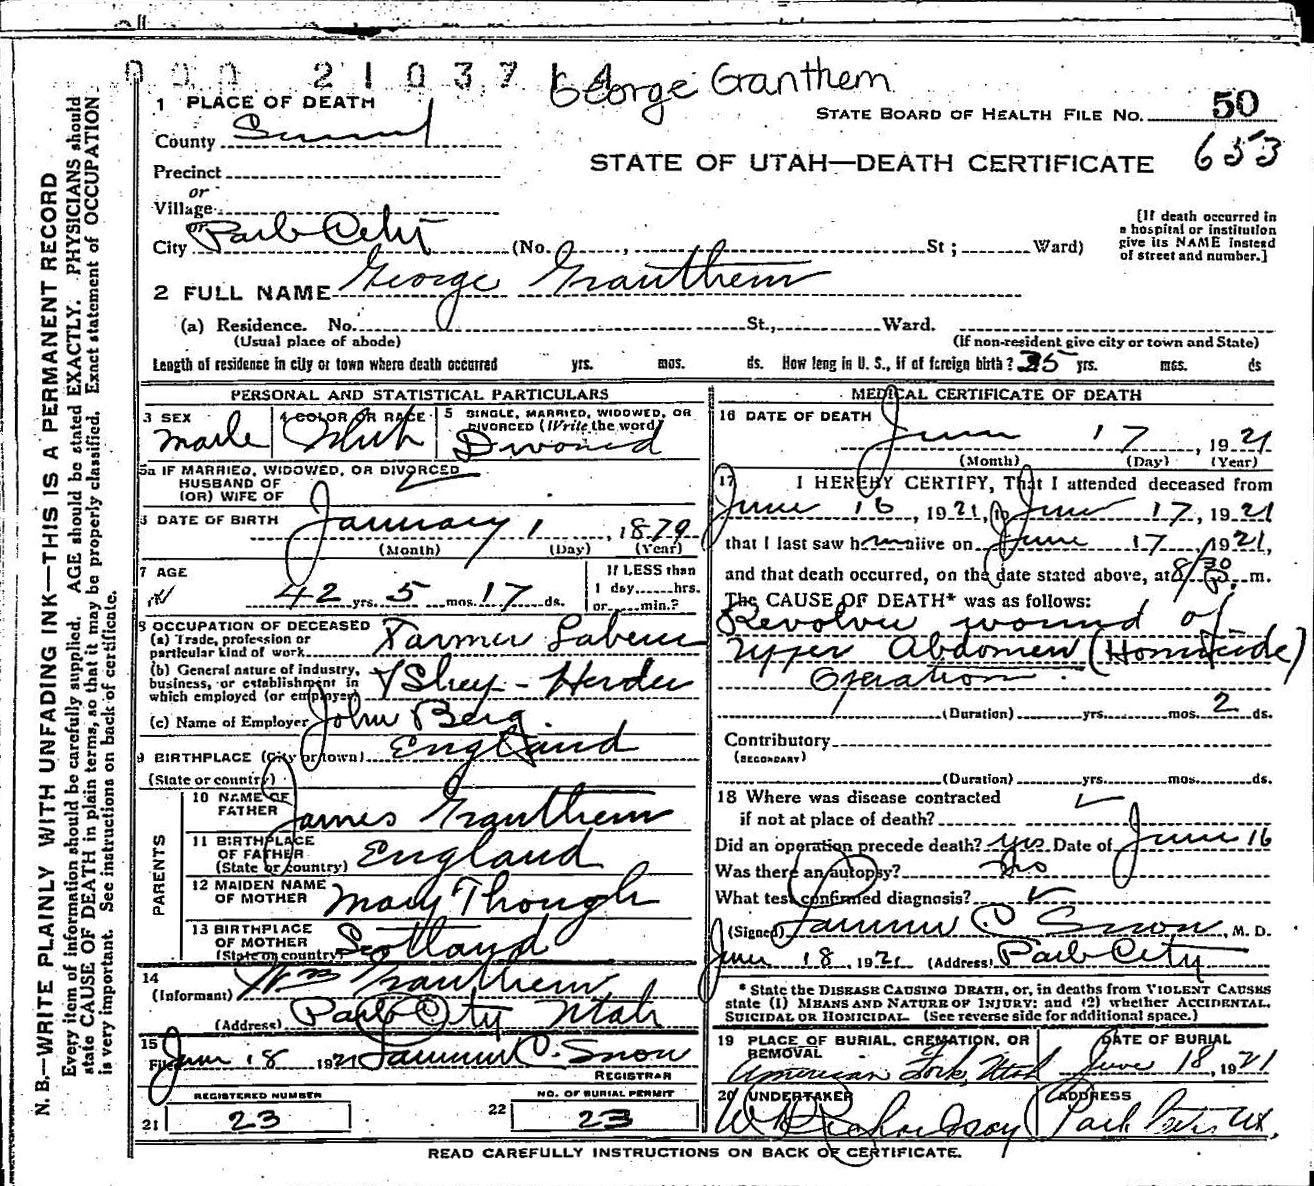 0 0 0 2 1 0 3 7 1 4 George Granthem
1 PLACE OF DEATH
STATE BOARD OF HEALTH FILE NO. 50
County Summit
653
STATE OF UTAH—DEATH CERTIFICATE
Precinct
or
Village
or
City Park City (No. , St ; Ward)
[If death occurred in
a hospital or institution
give its NAME instead
of street and number.]
2 FULL NAME George Granthem
(a) Residence. No. St., Ward.
(Usual place of abode)
(If non-resident give city or town and State)
Length of residence in city or town where death occurred yrs. mos. ds. How long in U. S., if of foreign birth? 35 yrs. mos. ds
PERSONAL AND STATISTICAL PARTICULARS
3 SEX
Male
4 COLOR OR RACE
White
5 SINGLE, MARRIED, WIDOWED, OR
DIVORCED (Write the word)
Divorced
5a IF MARRIED, WIDOWED, OR DIVORCED
HUSBAND OF
(OR) WIFE OF
6 DATE OF BIRTH January 1, 1879
(Month) (Day) (Year)
7 AGE
42 yrs. 5 mos. 17 ds.
If LESS than
1 day hrs.
or min.?
8 OCCUPATION OF DECEASED
(a) Trade, profession or
particular kind of work Farmer Laborer
(b) General nature of industry,
business, or establishment in
which employed (or employer) & Sheep - Herder
(c) Name of Employer John Berg.
9 BIRTHPLACE (City or town) England
(State or country)
PARENTS
10 NAME OF
FATHER James Granthem
11 BIRTHPLACE
OF FATHER
(State or country) England
12 MAIDEN NAME
OF MOTHER Mary Though
13 BIRTHPLACE
OF MOTHER
(State or country) Scotland
14
(Informant) Wm Granthem
(Address) Park City Utah
15
Filed June 18 1921 C. Snow
REGISTRAR
REGISTERED NUMBER
21 23
NO. OF BURIAL PERMIT
22 23
MEDICAL CERTIFICATE OF DEATH
16 DATE OF DEATH
June 17, 1921
(Month) (Day) (Year)
17 I HEREBY CERTIFY, That I attended deceased from
June 16, 1921, to June 17, 1921
that I last saw him alive on June 17, 1921,
and that death occurred, on the date stated above, at 8/30 P. m.
The CAUSE OF DEATH* was as follows:
Revolver wound of
Upper Abdomen (Homicide)
Operation
(Duration) yrs. mos. 2 ds.
Contributory
(SECONDARY)
(Duration) yrs. mos. ds.
18 Where was disease contracted
if not at place of death?
Did an operation precede death? yes Date of June 16
Was there an autopsy? no
What test confirmed diagnosis?
(Signed) C Snow, M. D.
June 18, 1921 (Address) Park City
* State the DISEASE CAUSING DEATH, or, in deaths from VIOLENT CAUSES
state (1) MEANS AND NATURE OF INJURY; and (2) whether ACCIDENTAL,
SUICIDAL OR HOMICIDAL. (See reverse side for additional space.)
19 PLACE OF BURIAL, CREMATION, OR
REMOVAL
American Fork, Utah
DATE OF BURIAL
June 18, 1921
20 UNDERTAKER
W Richardson
ADDRESS
Park City Ut,
READ CAREFULLY INSTRUCTIONS ON BACK OF CERTIFICATE.
N. B.—WRITE PLAINLY WITH UNFADING INK—THIS IS A PERMANENT RECORD
Every item of information should be carefully supplied. AGE should be stated EXACTLY. PHYSICIANS should
state CAUSE OF DEATH in plain terms, so that it may be properly classified. Exact statement of OCCUPATION
is very important. See instructions on back of certificate.